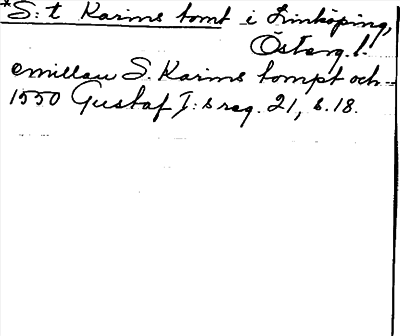 *S:t Karins tomt i Linköping,
Österg.l.
emillan S. Karins tompt och --
1550 Gustaf I:s reg. 21, s. 18.